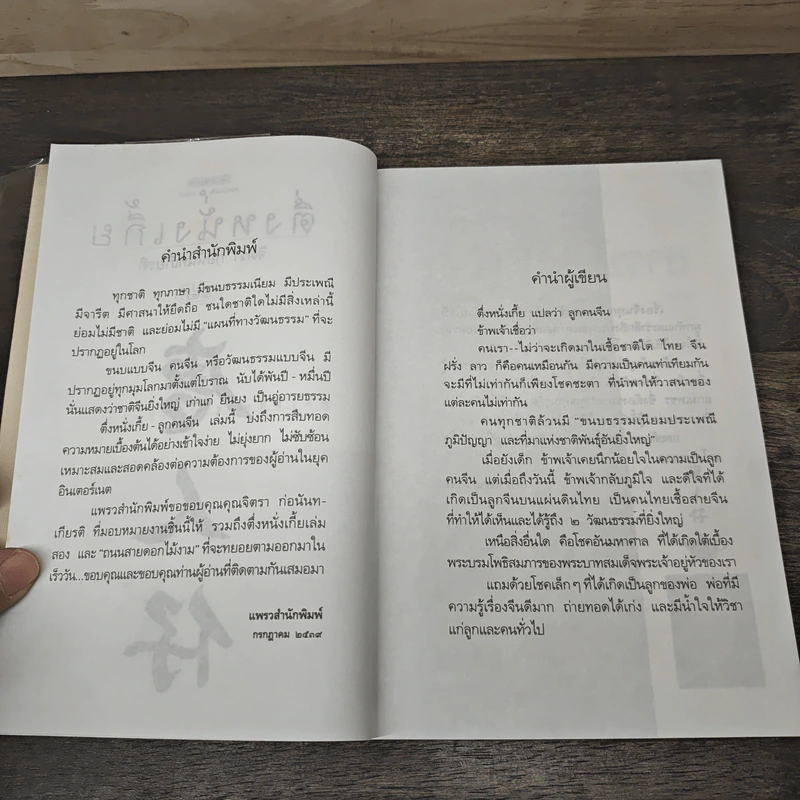 คำนำสำนักพิมพ์
ทุกชาติ ทุกภาษา มีขนบธรรมเนียม มีประเพณี
มีจารีต มีศาสนาให้ยึดถือ ชนใดชาติใดไม่มีสิ่งเหล่านี้
ย่อมไม่มีชาติ และย่อมไม่มี "แผนที่ทางวัฒนธรรม" ที่จะ
ปรากฏอยู่ในโลก
ขนบแบบจีน คนจีน หรือวัฒนธรรมแบบจีน มี
ปรากฏอยู่ทุกมุมโลกมาตั้งแต่โบราณ นับได้พันปี - หมื่นปี
นั่นแสดงว่าชาติจีนยิ่งใหญ่ เก่าแก่ ยืนยง เป็นอู่อารยธรรม
ตึ่งหนั่งเกี้ย - ลูกคนจีน เล่มนี้ บ่งถึงการสืบทอด
ความหมายเบื้องต้นได้อย่างเข้าใจง่าย ไม่ยุ่งยาก ไม่ซับซ้อน
เหมาะสมและสอดคล้องต่อความต้องการของผู้อ่านในยุค
อินเตอร์เนต
แพรวสำนักพิมพ์ขอขอบคุณคุณจิตรา ก่อนันท-
เกียรติ ที่มอบหมายงานชิ้นนี้ให้ รวมถึงตึ่งหนั่งเกี้ยเล่ม
สอง และ "ถนนสายดอกไม้งาม" ที่จะทยอยตามออกมาใน
เร็ววัน...ขอบคุณและขอบคุณท่านผู้อ่านที่ติดตามกันเสมอมา
แพรวสำนักพิมพ์
กรกฎาคม ๒๕๓๙
คำนำผู้เขียน
ตึ่งหนั่งเกี้ย แปลว่า ลูกคนจีน
ข้าพเจ้าเชื่อว่า
คนเรา--ไม่ว่าจะเกิดมาในเชื้อชาติใด ไทย จีน
ฝรั่ง ลาว ก็คือคนเหมือนกัน มีความเป็นคนเท่าเทียมกัน
จะมีที่ไม่เท่ากันก็เพียงโชคชะตา ที่นำพาให้วาสนาของ
แต่ละคนไม่เท่ากัน
คนทุกชาติล้วนมี "ขนบธรรมเนียมประเพณี
ภูมิปัญญา และที่มาแห่งชาติพันธุ์อันยิ่งใหญ่"
เมื่อยังเด็ก ข้าพเจ้าเคยนึกน้อยใจในความเป็นลูก
คนจีน แต่เมื่อถึงวันนี้ ข้าพเจ้ากลับภูมิใจ และดีใจที่ได้
เกิดเป็นลูกจีนบนแผ่นดินไทย เป็นคนไทยเชื้อสายจีน
ที่ทำให้ได้เห็นและได้รู้ถึง ๒ วัฒนธรรมที่ยิ่งใหญ่
เหนือสิ่งอื่นใด คือโชคอันมหาศาล ที่ได้เกิดใต้เบื้อง
พระบรมโพธิสมภารของพระบาทสมเด็จพระเจ้าอยู่หัวของเรา
แถมด้วยโชคเล็ก ๆ ที่ได้เกิดเป็นลูกของพ่อ พ่อที่มี
ความรู้เรื่องจีนดีมาก ถ่ายทอดได้เก่ง และมีน้ำใจให้วิชา
แก่ลูกและคนทั่วไป